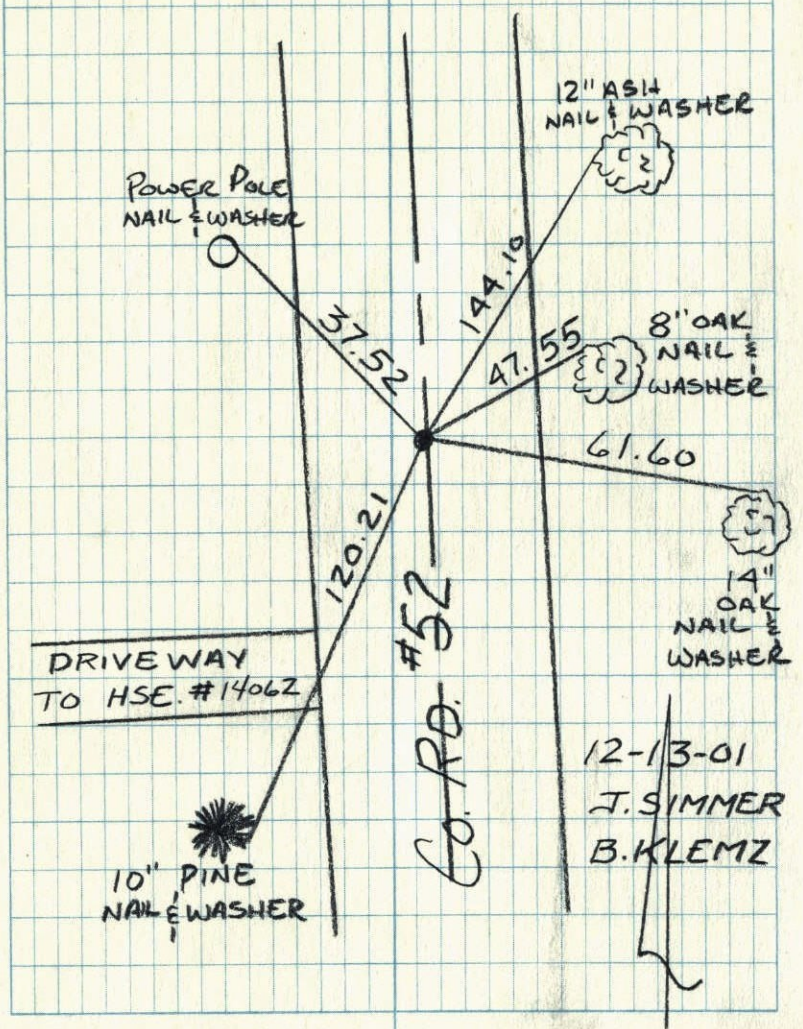 12" ASH
NAIL & WASHER
POWER POLE
NAIL & WASHER
144.10
37.52
8" OAK
NAIL &
WASHER
47.55
61.60
120.21
14"
OAK
NAIL &
WASHER
#52
CO. RD.
DRIVEWAY
TO HSE. #14062
12-13-01
J. SIMMER
B. KLEMZ
10" PINE
NAIL & WASHER